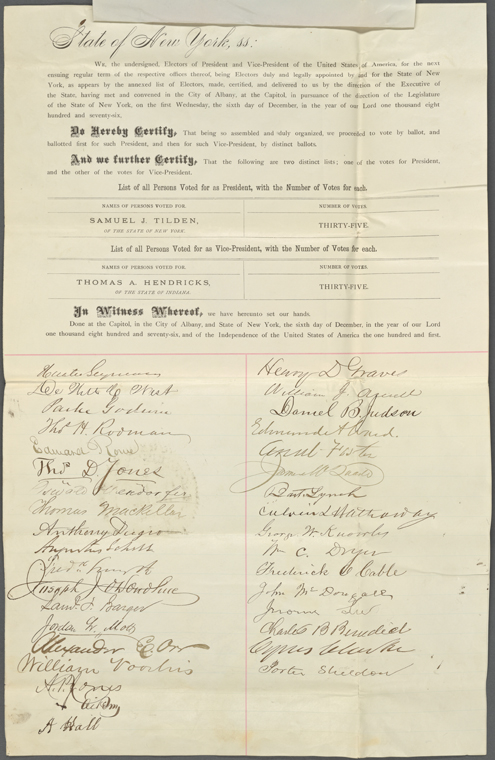 State of New York, ss:
We, the undersigned, Electors of President and Vice-President of the United States of America, for the next
ensuing regular term of the respective offices thereof, being Electors duly and legally appointed by and for the State of New
York, as appears by the annexed list of Electors, made, certified, and delivered to us by the direction of the Executive of
the State, having met and convened in the City of Albany, at the Capitol, in pursuance of the direction of the Legislature
of the State of New York, on the first Wednesday, the sixth day of December, in the year of our Lord one thousand eight
hundred and seventy-six.
Do Hereby Certify, That being so assembled and duly organized, we proceeded to vote by ballot, and
ballotted first for such President, and then for such Vice-President, by distinct ballots.
And we further Certify, That the following are two distinct lists; one of the votes for President,
and the other of the votes for Vice-President.
List of all Persons Voted for as President, with the Number of Votes for each.
NAMES OF PERSONS VOTED FOR. NUMBER OF VOTES.
SAMUEL J. TILDEN, THIRTY-FIVE.
OF THE STATE OF NEW YORK.
List of all Persons Voted for as Vice-President, with the Number of Votes for each.
NAMES OF PERSONS VOTED FOR. NUMBER OF VOTES.
THOMAS A. HENDRICKS, THIRTY-FIVE.
OF THE STATE OF INDIANA.
In Witness Whereof, we have hereunto set our hands.
Done at the Capitol, in the City of Albany, and State of New York, the sixth day of December, in the year of our Lord
one thousand eight hundred and seventy-six, and of the Independence of the United States of America the one hundred and first.
Horatio Seymour
De Witt C. West
Parke Godwin
Thos H. Rodman
Edward Rowe
Thos D Jones
Thomas Mackellar
Anthony
Augustus Schell
Joseph J O'Donohue
Saml. F. Barger
Jordan L. Mott
Alexander E. Orr
William Voorhis
A. P. Jones
A Hall
Henry D Graves
William J. Averell
Daniel B. Judson
Edmund A Ward.
James W
Bart. Lynch
Calvin L Hathaway
George W. Knowles
W C. Dryer
Frederick O Cable
John McDougall
Jerome Lee
Charles B Benedict
Cyrus Clarke
Porter Sheldon